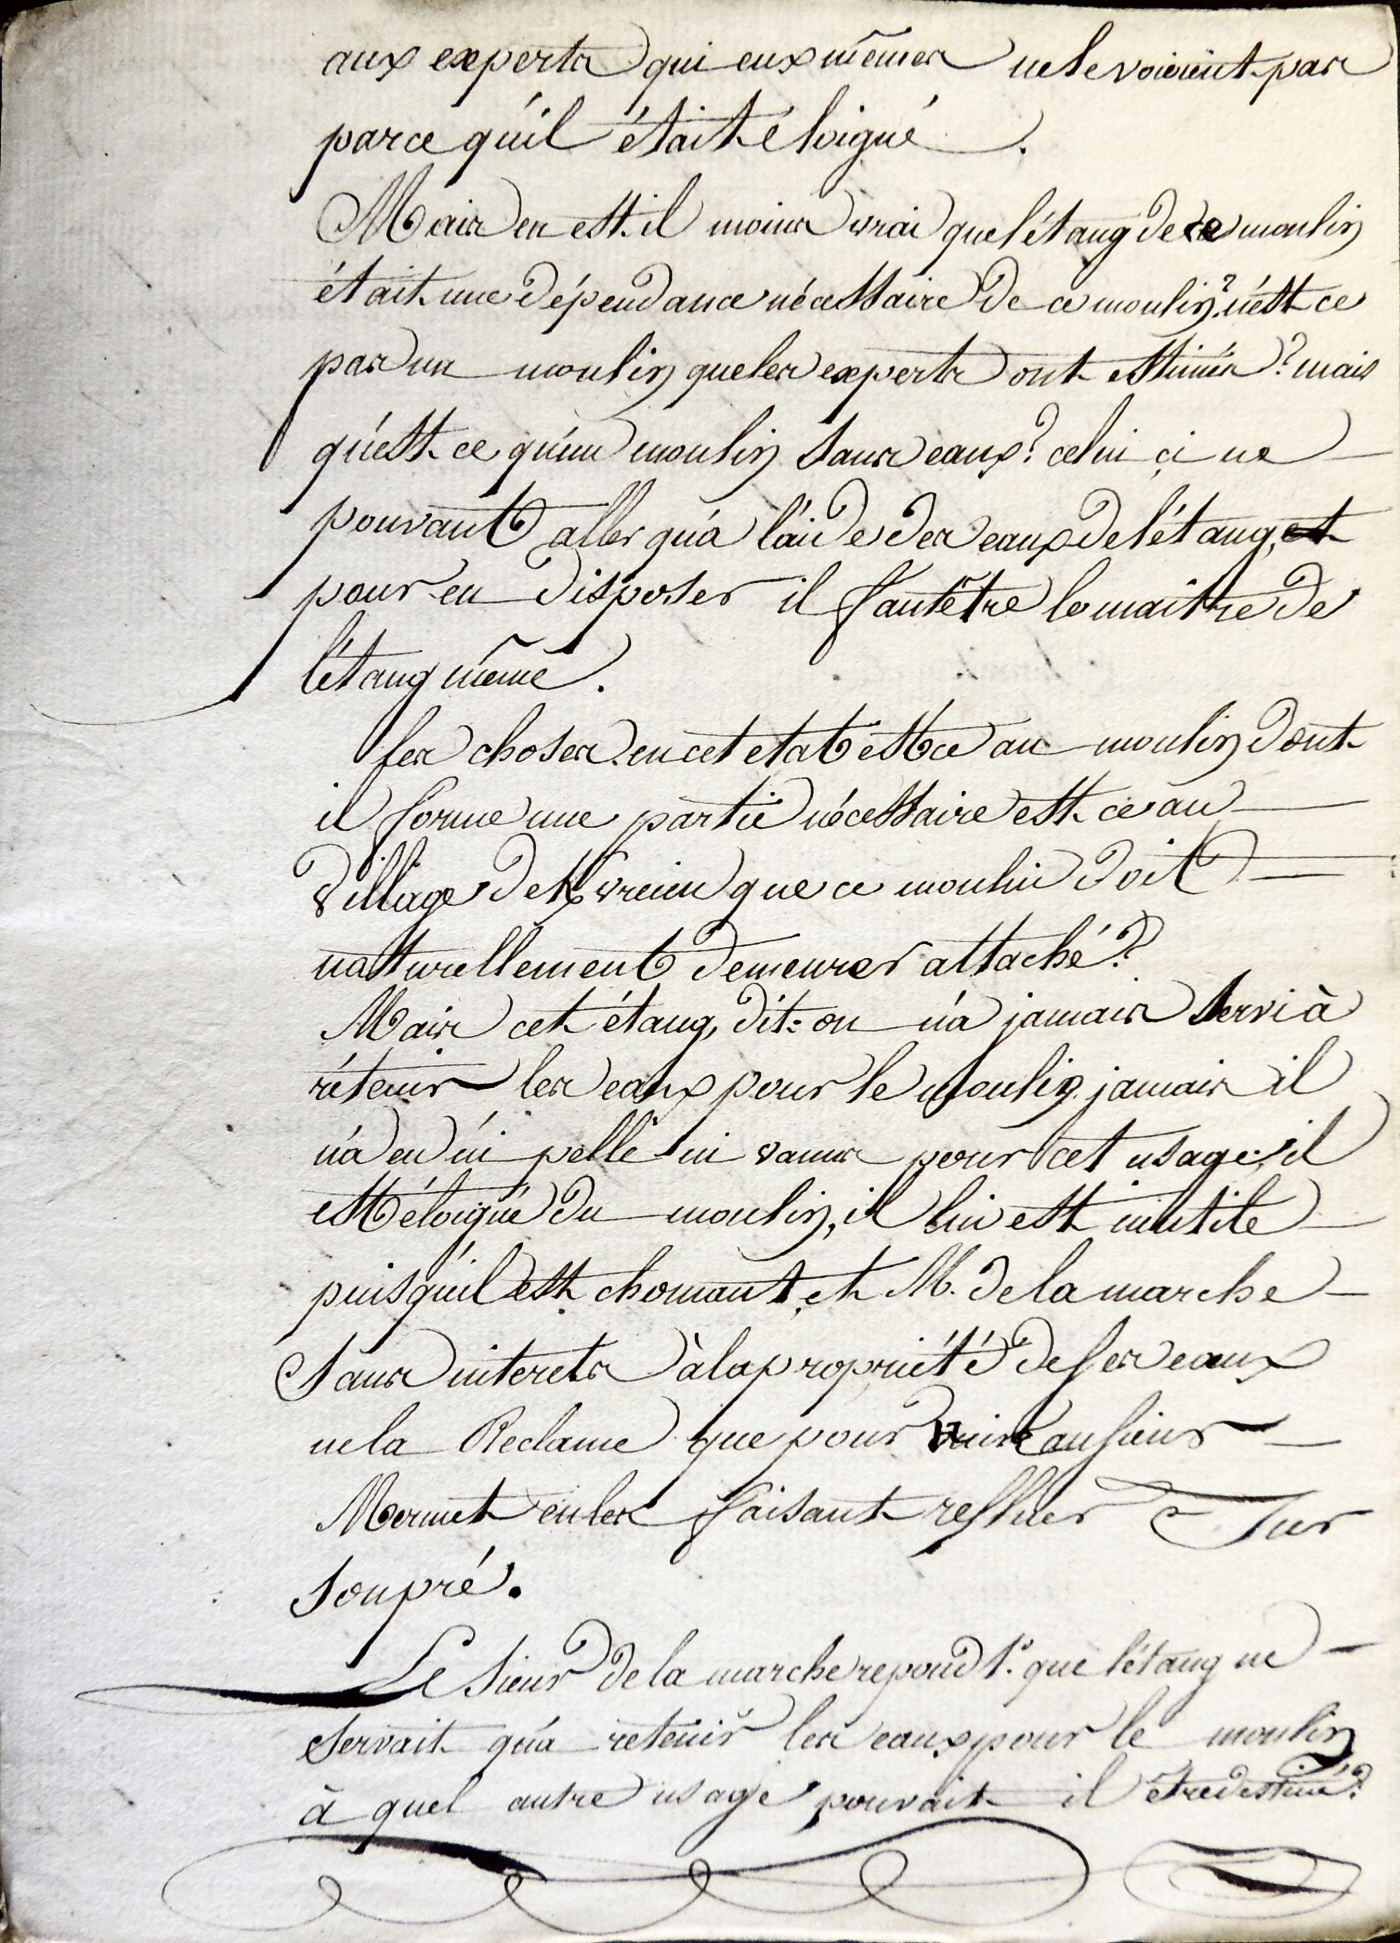 aux experts qui eux mêmes ne le voioient pas
parce qu'il était éloigné.
Mais en est-il moins vrai que l'étang de ce moulin
était une dépendance nécessaire de ce moulin? n'est ce
pas un moulin que les experts ont estimés? mais
qu'est-ce qu'un moulin sans eaux? celui ci ne
pouvant aller qu'à l'aide des eaux de l'étang, et
pour en disposer il faut être le maitre de
l'étang même.
les choses en cet etat est ce au moulin dont
il forme une partie nécessaire est-ce au
Village de que ce moulin doit
naturellement demeurer attaché?
Mais cet étang, dit-on n'a jamais servi à
rétenir les eaux pour le moulin. jamais il
n'a eu ni pelle ni vanne pour cet usage, il
est éloigné du moulin, il lui est inutile
puisqu'il est chomant, et M. de la marche
sans interets à la propriété de ses eaux
ne la Réclame que pour nuire au sieur
Mermet en les faisant refluer sur
son pré.
Le sieur de la marche repond 1.° que l'étang ne
servait qu'à retenir les eaux pour le moulin
à quel autre usage pouvait-il être destiné?